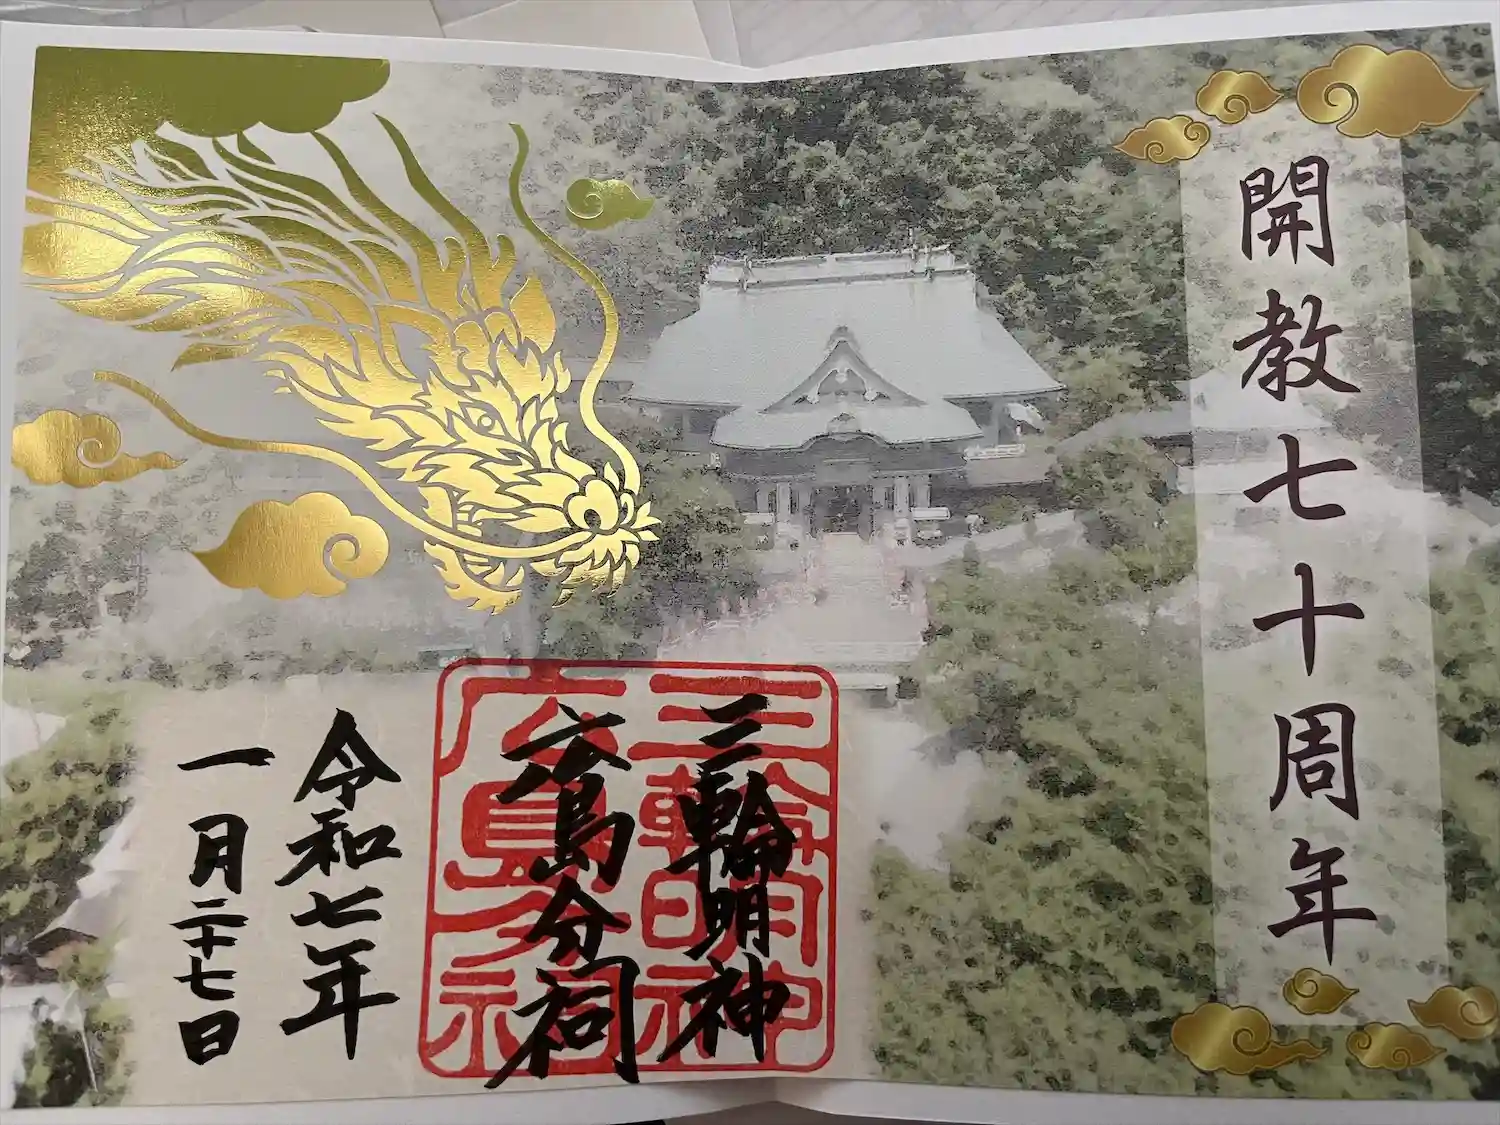 開教七十周年
三輪明神
広島分祠
三輪明神
広島分祠
令和七年
一月二十七日